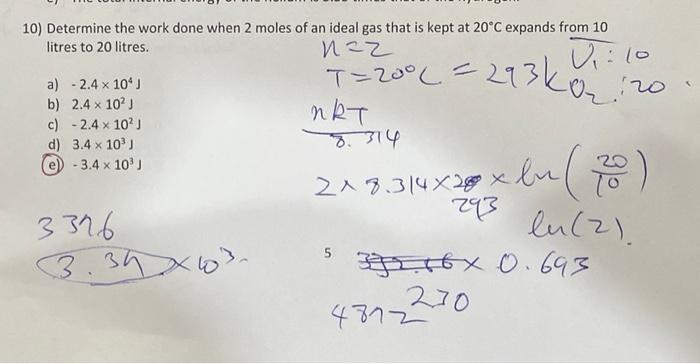 10) Determine the work done when 2 moles of an ideal gas that is kept at 20°C expands from 10
litres to 20 litres.
n=2
V₁: 10
T=20°C = 293k
V₂: 20
a) - 2.4 x 10⁴ J
b) 2.4 x 10² J
c) - 2.4 x 10² J
d) 3.4 x 10³ J
e) - 3.4 x 10³ J
nRT
8.314
2 x 8.314 x 293 x ln(20/10)
ln(2).
3376
3.37 x 10³
5
x 0.693
4872
230